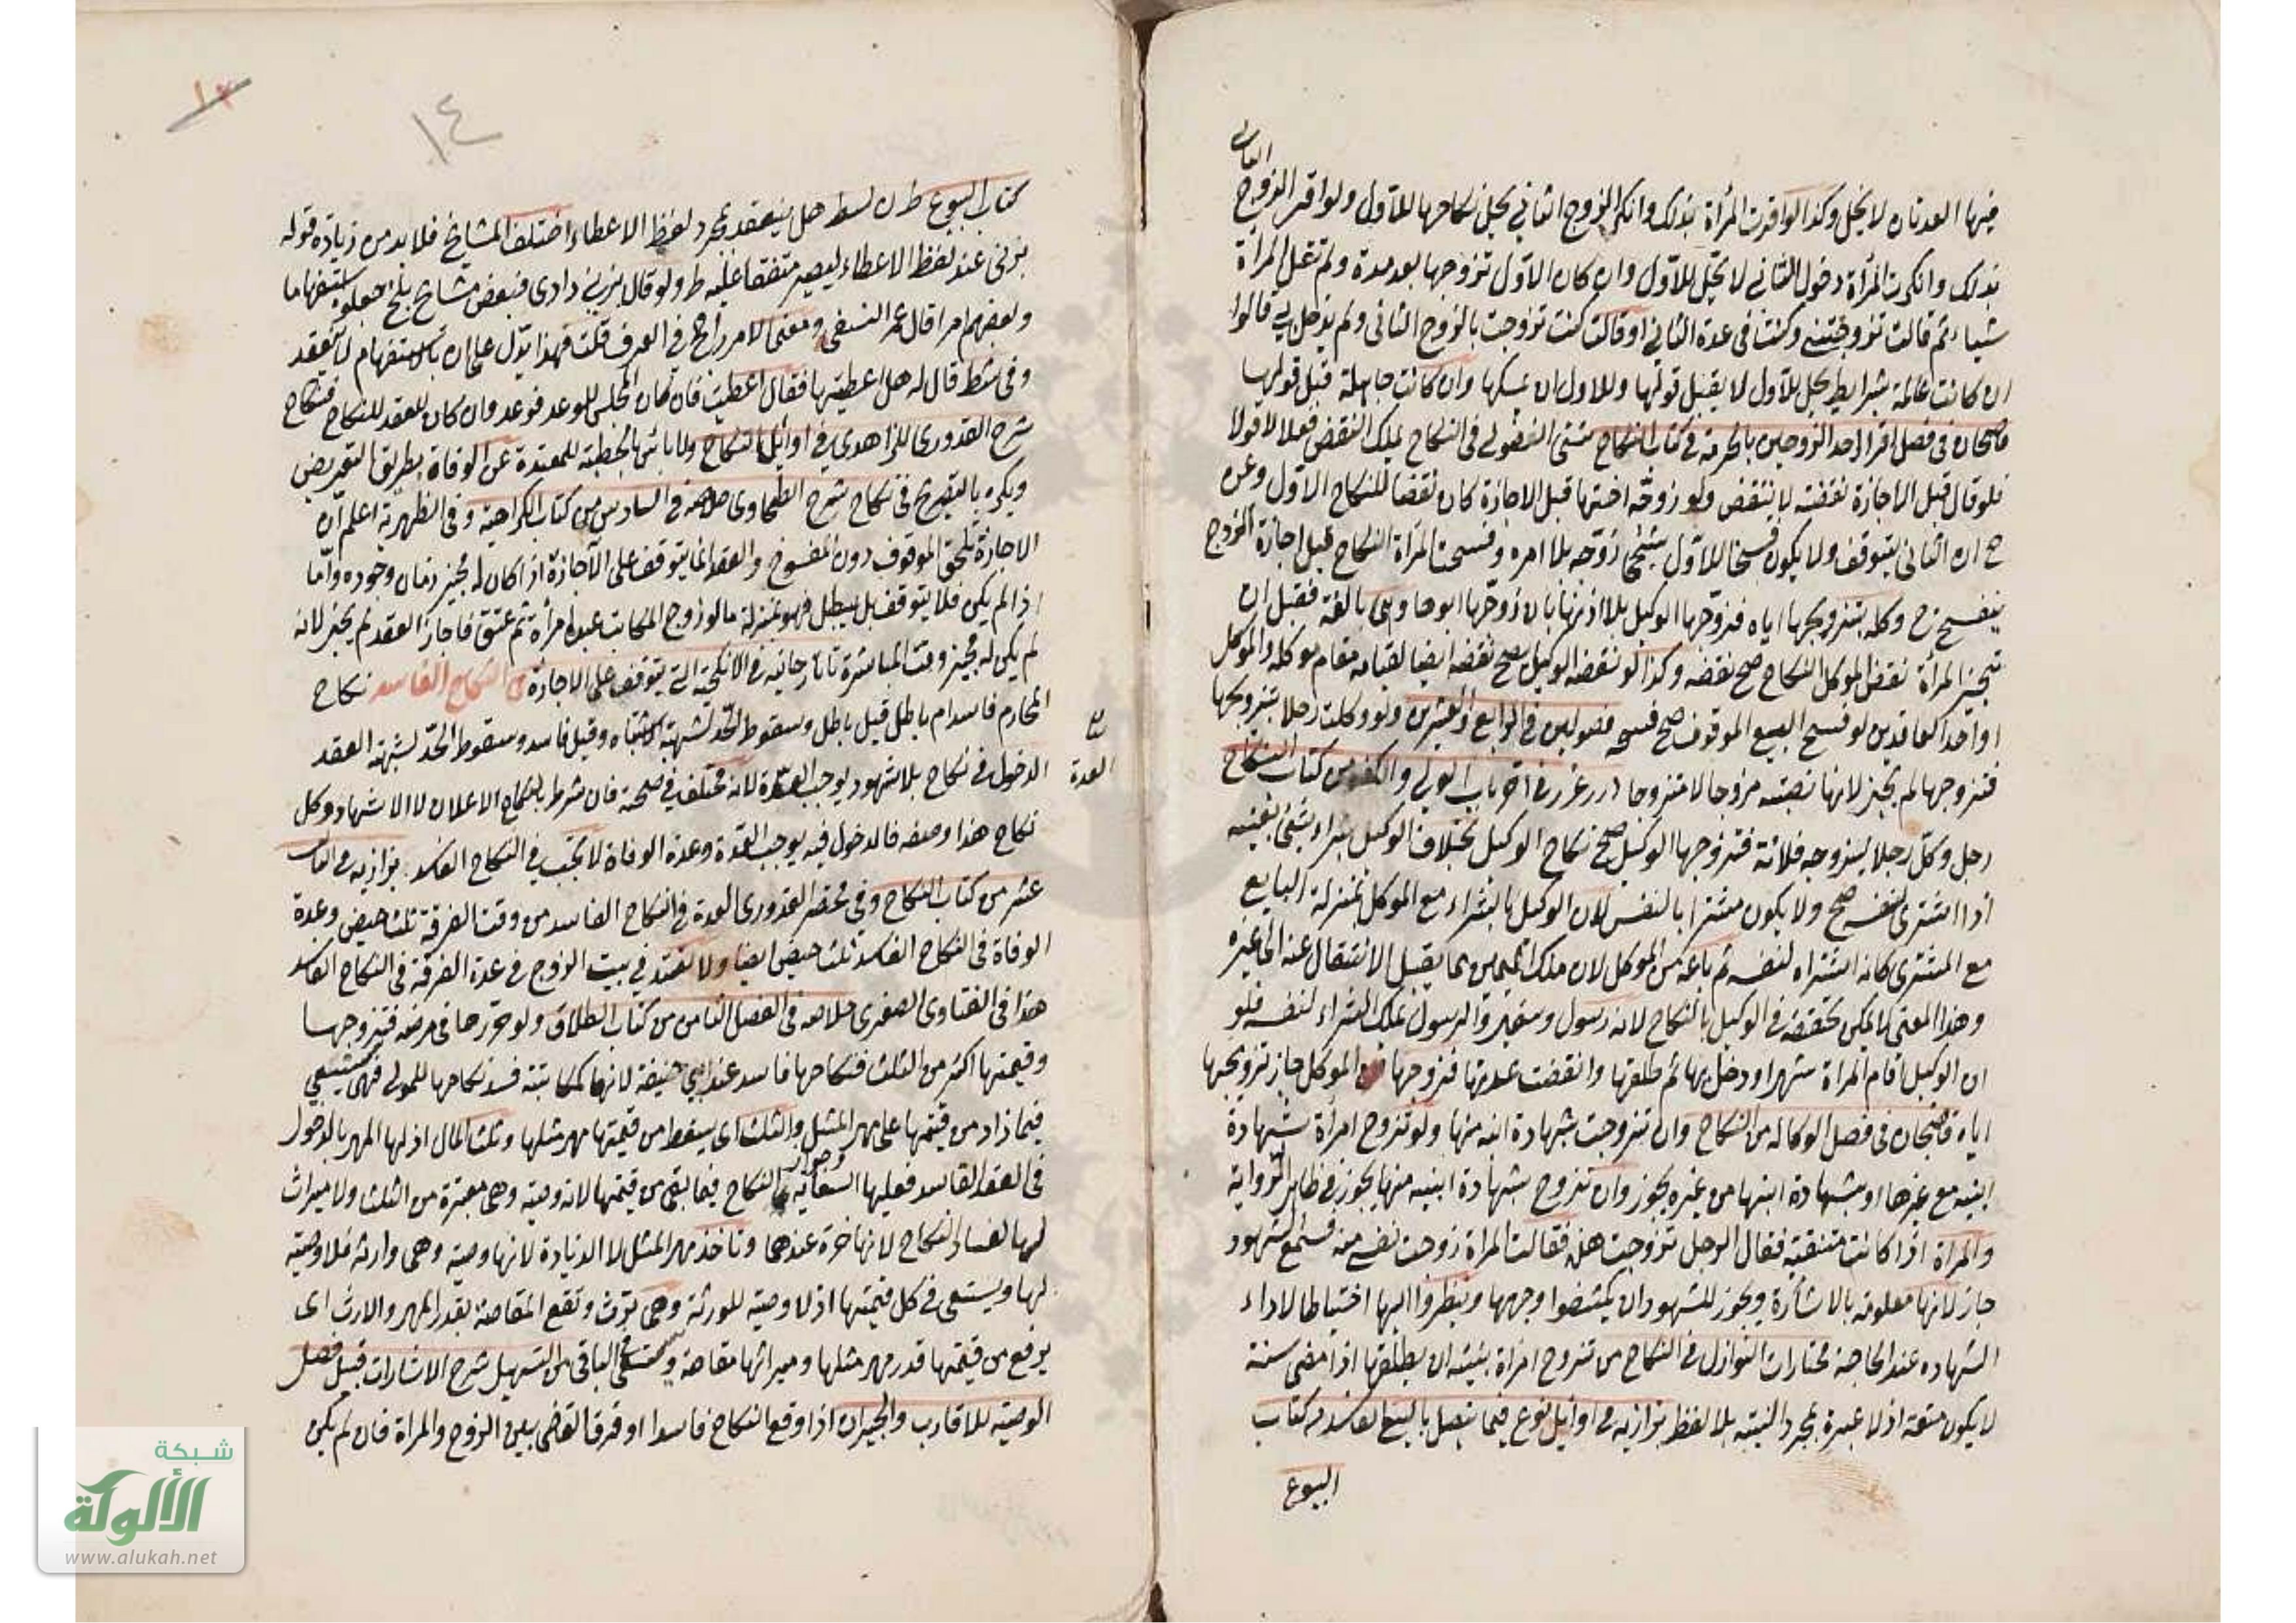 الثانى
فيها العدتان لا يحل وكذا لو اقرت المرأة بذلك وانكر الزوج الثاني يحل نكاحها للاول ولو اقر الزوج
بذلك وانكرت المرأة دخول الثاني لا تحل للاول وان كان الاول تزوجها بعد مدة ولم تقل المرأة
شيأ ثم قالت تزوجتني وكنت في عدة الثاني او قالت كنت تزوجت بالزوج الثانى ولم يدخل بي قالوا
ان كانت عالمة بشرايط حل للاول لا يقبل قولها وللاول ان يمسكها وان كانت جاهلة قبل قولها
قاضيخان فى فصل اقرار احد الزوجين بالحرمة في كتاب النكاح الفضولي في النكاح يملك النقض فعلا لا قولا
فلو قال قبل الاجازة نقضته لا ينتقض ولو زوجه اختها قبل الاجازة كان نقضا للنكاح الاول وعن
ح ان الثاني يتوقف ولا يكون فسخا للاول زوجه بلا امره وفسخت المرأة النكاح قبل اجازة الزوج
ينفسخ وكله بتزويجها اياه فزوجها الوكيل بلا اذنها بان زوجها ابوها وهى بالغة فقبل ان
تجيز المرأة نقض الموكل النكاح صح نقضه وكذا لو نقضه الوكيل صح نقضه ايضا لقيامه مقام موكله والموكل
او احد العاقدين لو فسخ البيع الموقوف صح فسخه فصولين في الرابع والعشرين ولو وكلت رجلا بتزويجها
فتزوجها لم يجز لانها نصبته مزوجا لا متزوجا درر غرر في اخر باب الولي والكفو من كتاب النكاح
رجل وكل رجلا ليزوجه فلانة فتزوجها الوكيل صح نكاح الوكيل بخلاف الوكيل بشراء شئ بعينه
اذا اشترى لنفسه صح ولا يكون مشتريا لنفسه لان الوكيل بالشراء مع الموكل بمنزلة البايع
مع المشترى كانه اشتراه لنفسه ثم باعه من الموكل لان ملك اليمين مما يقبل الانتقال عنه الى غيره
وهذا المعنى لا يمكن تحققه في الوكيل بالنكاح لانه رسول وسفير والرسول يملك الشراء لنفسه فلو
ان الوكيل اقام المرأة شهرا ودخل بها ثم طلقها وانقضت عدتها فزوجها من الموكل جاز تزويجها
اياه قاضيخان في فصل الوكالة من النكاح وان تزوجت بشهادة ابنه منها ولو تزوج امرأة بشهادة
ابنيه مع غيرها او بشهادة ابنها من غيره يجوز وان تزوج بشهادة ابنيه منها يجوز في ظاهر الرواية
والمرأة اذا كانت متنقبة فقال الرجل تزوجت هذه فقالت المرأة زوجت نفسي منه فسمع الشهود
جاز لانها معلومة بالاشارة ويجوز للشهود ان يكشفوا وجهها وينظروا اليها احتياطا لاداء
الشهادة عند الحاجة مختارات النوازل في النكاح من تزوج امرأة بنية ان يطلقها اذا مضى سنة
لا يكون متعة اذ لا عبرة بمجرد النية بلا لفظ بزازيه في اوائل نوع فيما يتصل بالبيع الفاسد من كتاب
البيوع
١٣
١٤
كتاب البيوع هل ينعقد بمجرد لفظ الاعطاء اختلف المشايخ فلا بد من زيادة قوله
بزنى عند لفظ الاعطاء ليصير متفقا عليه ط ولو قال بزنى دادى فبعض مشايخ بلخ جعلوه استفهاما
وبعضهم امرا قال عمر النسفي ومعنى الامر راجح في العرف قلت فهذا يدل على ان بالاستفهام لا ينعقد
وفى شط قال له هل اعطيتها فقال اعطيت فان كان المجلس للوعد فوعد وان كان للعقد للنكاح فنكاح
شرح القدورى للزاهدى في اوائل النكاح ولا باس بالخطبة للمعتدة عن الوفاة بطريق التعريض
ويكره بالتصريح في نكاح شرح الطحاوى خلاصة في السادس من كتاب الكراهية وفي الظهيرية اعلم ان
الاجازة تلحق الموقوف دون المفسوخ والعقد انما يتوقف على الاجازة اذا كان له مجيز زمان وجوده واما
اذا لم يكن فلا يتوقف بل يبطل فهو بمنزلة ما لو زوج المكاتب عبده امرأة ثم عتق فاجاز العقد لم يجز لانه
لم يكن له مجيز وقت المباشرة تاتارخانيه في الانكحة التي يتوقف على الاجازة من النكاح الفاسد نكاح
المحارم فاسد ام باطل قيل باطل وسقوط الحد لشبهة الاشتباه وقيل فاسد وسقوط الحد لشبهة العقد
الدخول في نكاح بلا شهود يوجب العدة لانه مختلف في صحته فان شرط النكاح الاعلان لا الاشهاد وكل
العدة
نكاح هذا وصفه فالدخول فيه يوجب العدة وعدة الوفاة لا تجب في النكاح الفاسد بزازيه في الثاني
عشر من كتاب النكاح وفى مختصر القدورى العدة في النكاح الفاسد من وقت الفرقة ثلث حيض وعدة
الوفاة في النكاح الفاسد ثلث حيض ايضا ولا تعتد في بيت الزوج في عدة الفرقة في النكاح الفاسد
هذا في الفتاوى الصغرى خلاصه في الفصل الثامن من كتاب الطلاق ولو حررها في مرضه فتزوجها
وقيمتها اكثر من الثلث فنكاحها فاسد عند ابي حنيفة لانها كمكاتبته فسد نكاحها للمولى فهى تستسعي
فيما زاد من قيمتها على مهر المثل والثلث اى يسقط من قيمتها مهر مثلها وثلث المال اذ لها المهر بالدخول
في العقد الفاسد فعليها السعاية النكاح فيما بقى من قيمتها لانه وصية وهى معتبرة من الثلث ولا ميراث
لها لفساد النكاح لانها حرة عندهما وتاخذ مهر المثل لا الزيادة لانها وصية وهى وارثة فلا وصية
لها ويستسعى في كل قيمتها اذ لا وصية للورثة وهى ترث وتقع المقاصة بقدر المهر والارث اى
يرفع من قيمتها قدر مهر مثلها وميراثها مقاصة وتستسعى الباقى من التسهيل شرح الاشارات قبيل فصل
الوصية للاقارب والجيران اذا وقع النكاح فاسدا وفرق القاضى بين الزوج والمرأة فان لم يكن
شبكة
الألوكة
www.alukah.net